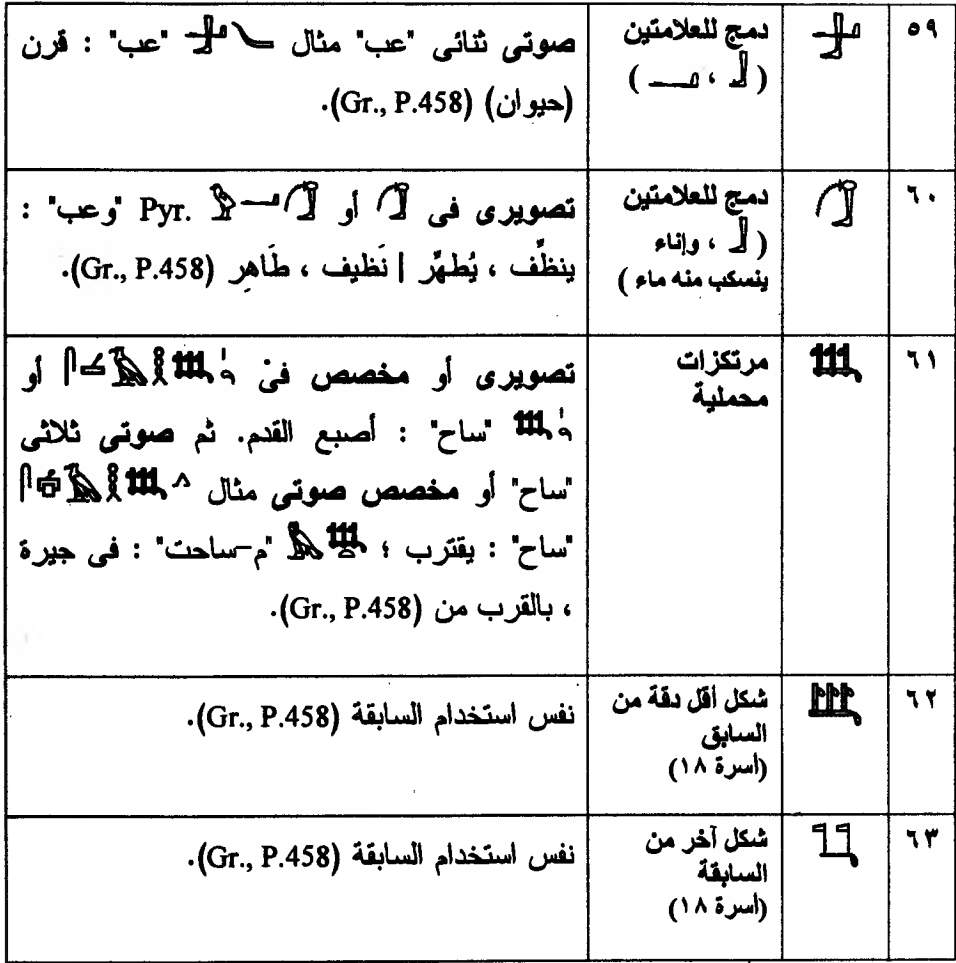 ٥٩ 𓃁 دمج للعلامتين
( 𓃀 ، 𓂝 )
صوتى ثنائى "عب" مثال 𓃁𓄏 "عب" : قرن
(حيوان) (Gr., P.458).
٦٠ 𓃂 دمج للعلامتين
( 𓃀 ، وإناء
ينسكب منه ماء )
تصويرى فى 𓃂 أو 𓅱𓂝𓃂 Pyr. "وعب" :
ينظِّف ، يُطهِّر | نَظيف ، طَاهِر (Gr., P.458).
٦١ 𓃃 مرتكزات
محملية
تصويرى أو مخصص فى أو
𓃃 "ساح" : أصبع القدم. ثم صوتى ثلاثى
"ساح" أو مخصص صوتى مثال
"ساح" : يقترب ؛ "م-ساحت" : فى جيرة
، بالقرب من (Gr., P.458).
٦٢ 𓃄 شكل أقل دقة من
السابق
(أسرة ١٨)
نفس استخدام السابقة (Gr., P.458).
٦٣ 𓃅 شكل آخر من
السابقة
(أسرة ١٨)
نفس استخدام السابقة (Gr., P.458).